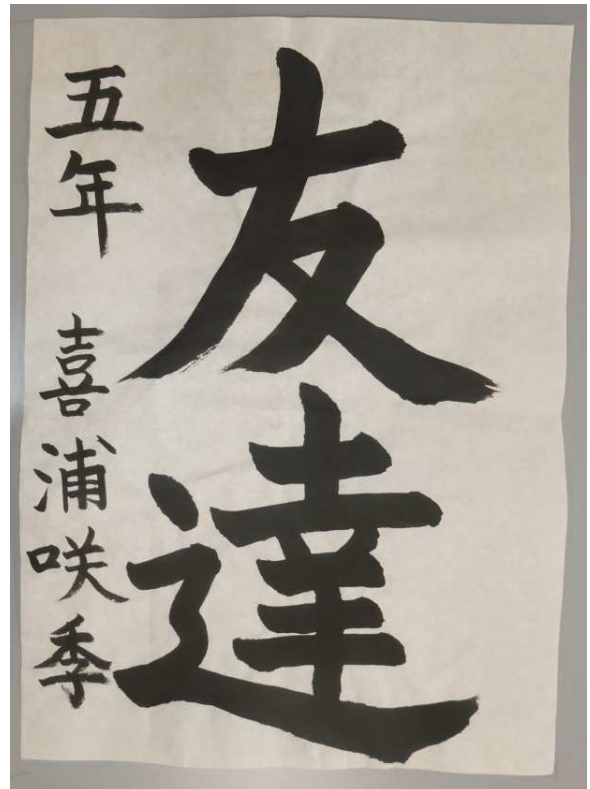 友達
五年 喜浦咲季